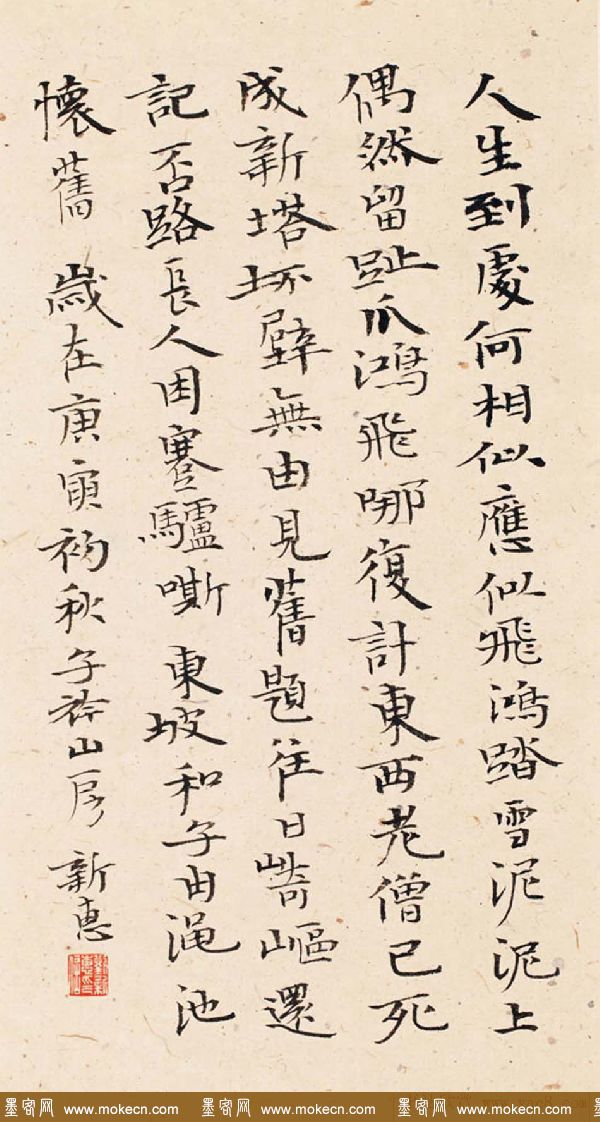 人生到處何相似應似飛鴻踏雪泥泥上
偶然留趾爪鴻飛哪復計東西老僧已死
成新塔坏壁無由見舊題往日崎嶇還
記否路長人困蹇驢嘶 東坡和子由渑池
懷舊 歲在庚寅初秋子山房 新惠
墨客网 www.mokecn.com 墨客网 www.mokecn.com 墨客网 www.mokecn.com